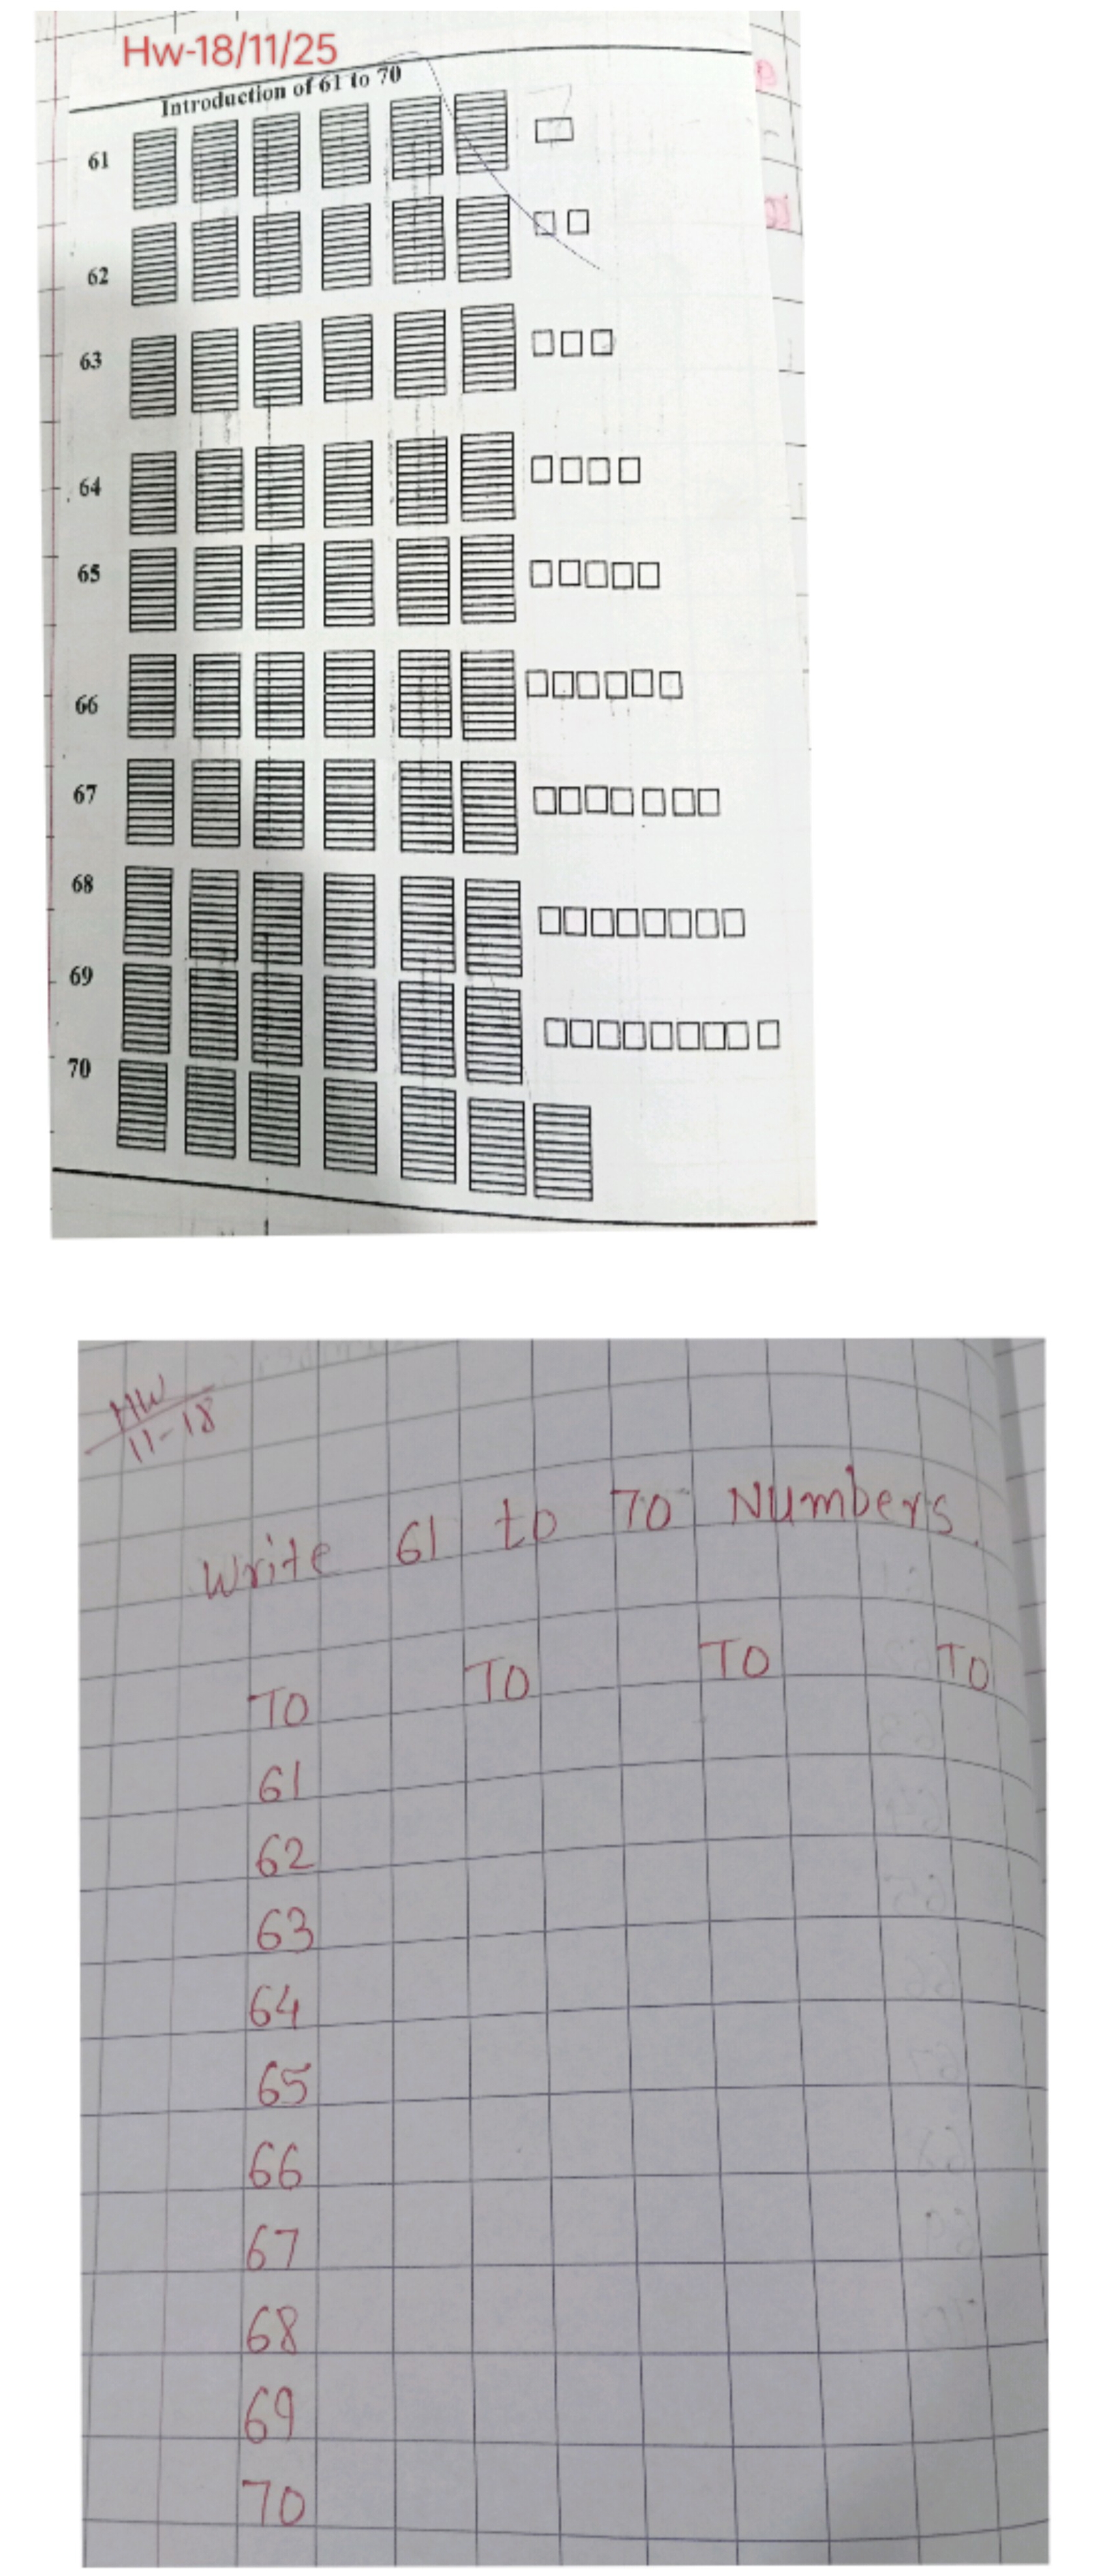 Hw-18/11/25
Introduction of 61 to 70
61
62
63
64
65
66
67
68
69
70
HW
11-18
Write 61 to 70 Numbers.
TO TO TO TO
61
62
63
64
65
66
67
68
69
70